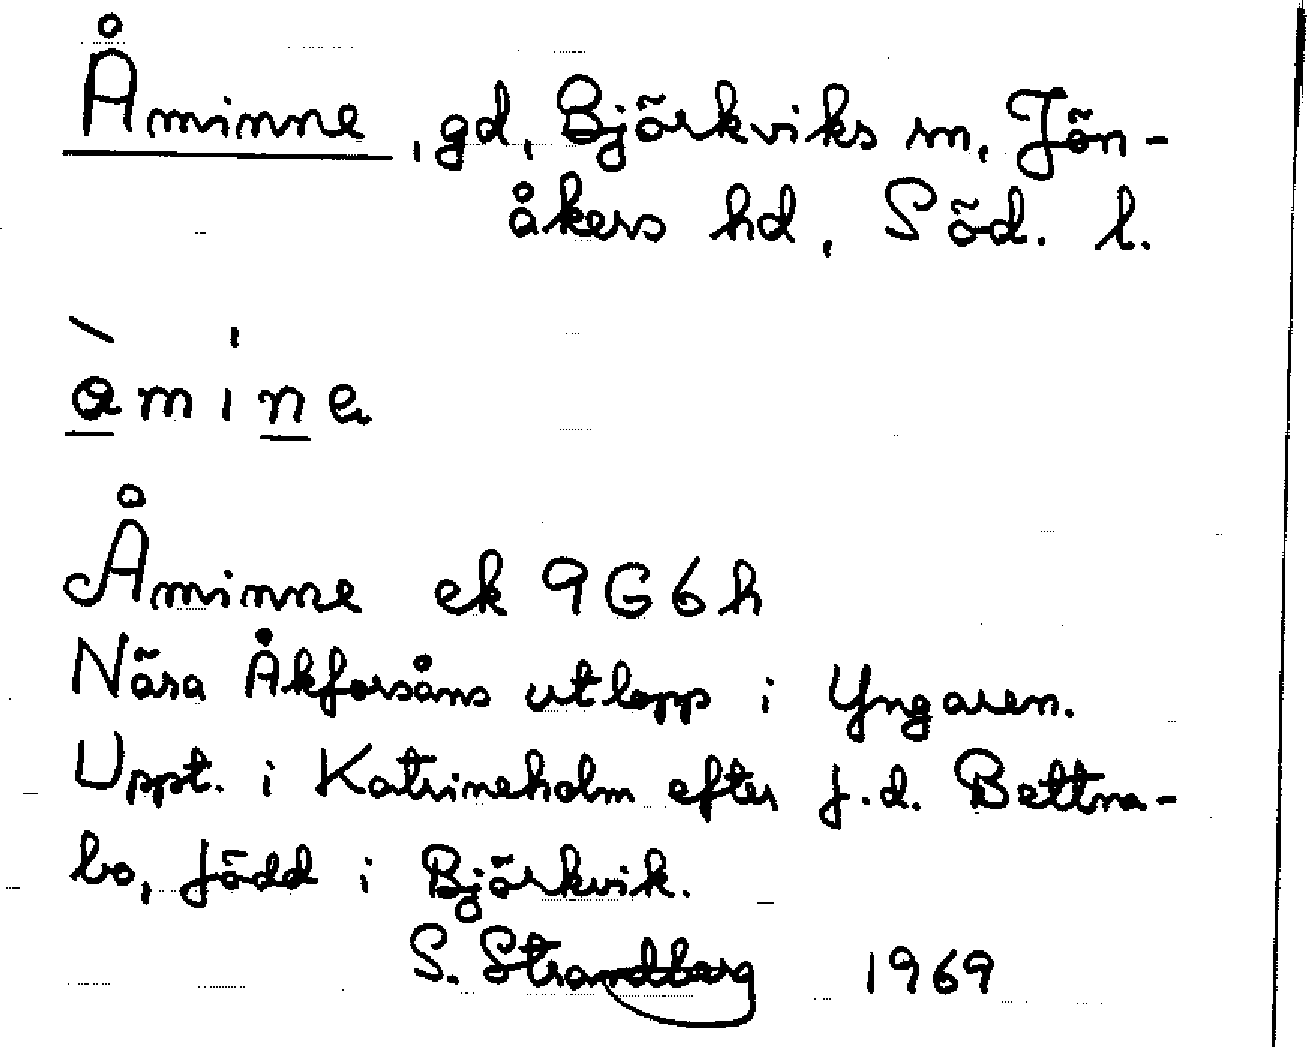 Åminne, gd, Björkviks sn, Jön-
åkers hd, Söd. l.
åmine
Åminne ek 9G6h
Nära Åkforsåns utlopp i Yngaren.
Uppt. i Katrineholm efter f.d. Bettna-
bo, född i Björkvik.
S. Strandberg 1969